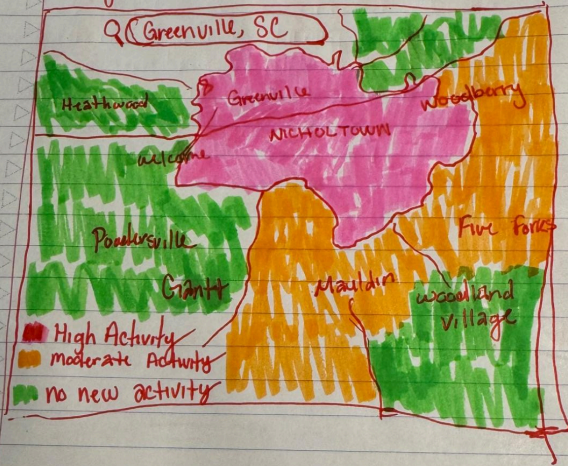 Greenville, SC
Heathwood
Greenville
Woodberry
NICHOLTOWN
Welcome
Powdersville
Five Forks
Gantt
Mauldin
Woodland
Village
High Activity
Moderate Activity
no new activity